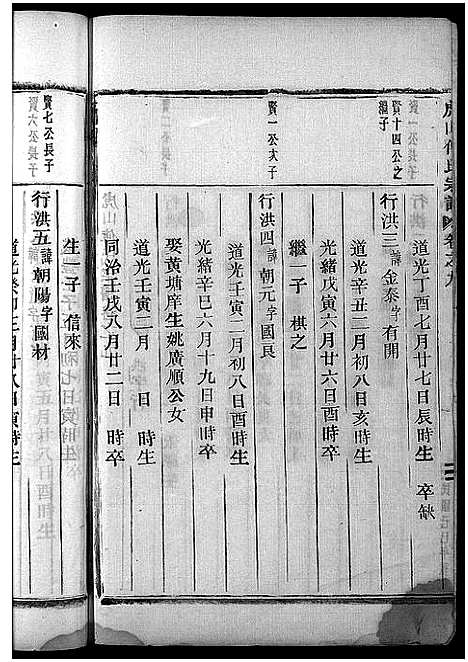 虎山傅氏宗譜 卷之九
道光丁酉七月廿七日辰時生 卒缺
賢十四公之繼子
行洪三 諱金泰字有開
道光辛丑二月初八日亥時生
光緒戊寅六月廿六日酉時卒
繼一子 棋之
賢一公次子
行洪四 諱朝元字國良
道光壬寅二月初八日酉時生
光緒辛巳六月十九日申時卒
娶黃塘庠生姚廣順公女
道光壬寅二月 日 時生
同治壬戌八月廿二日 時卒
生一子 信來
賢七公長子
行洪五 諱朝陽字國材